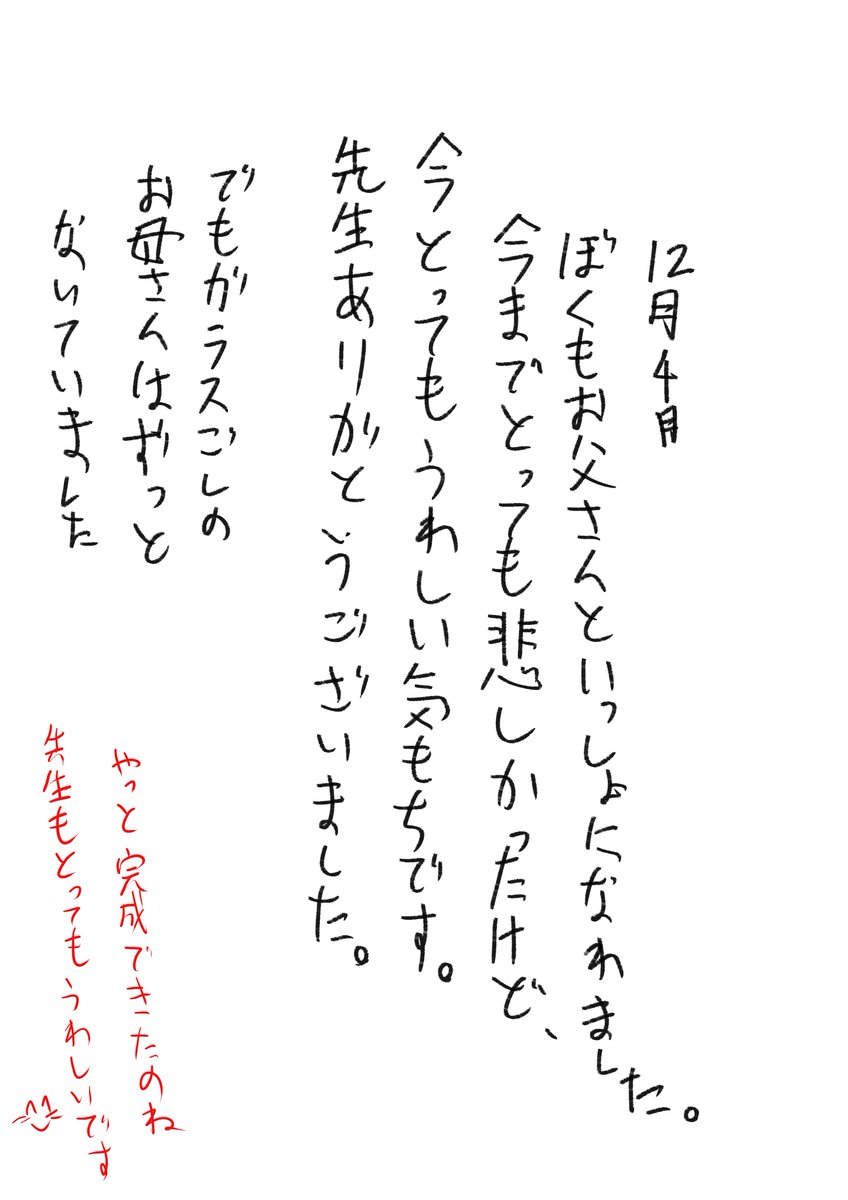 12月4日
ぼくもお父さんといっしょになれました。
今までとっても悲しかったけど、
今とってもうれしい気もちです。
先生ありがとうございました。
でもガラスごしの
お母さんはずっと
ないていました
やっと完成できたのね
先生もとってもうれしいです